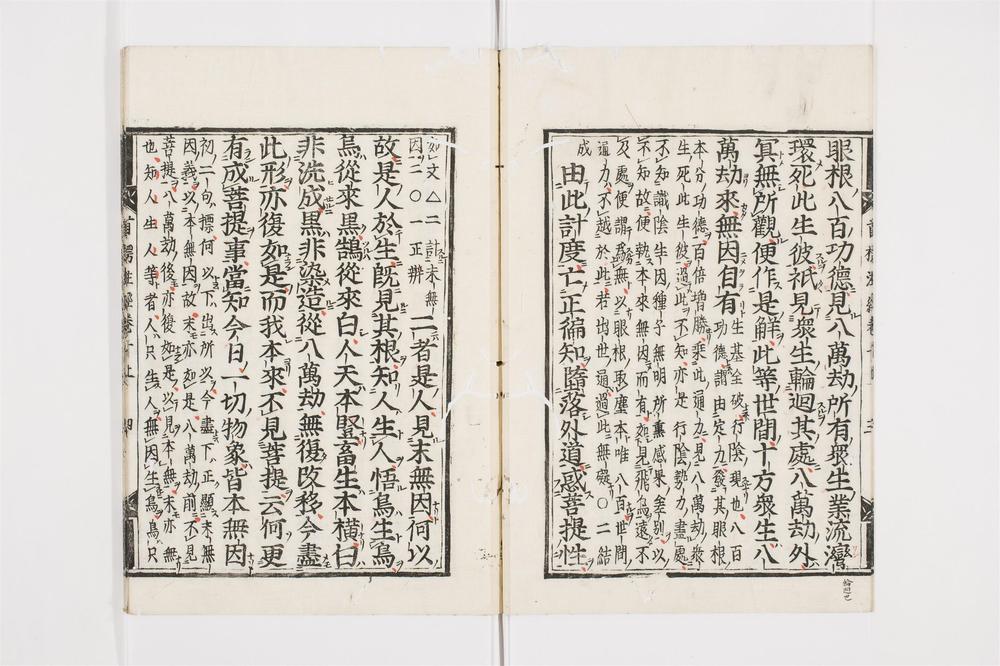 眼根八百功德見八萬劫所有衆生業流灣
環死此生彼祇見衆生輪迴其處八萬劫外
冥無所觀便作是解此等世間十方衆生八
萬劫來無因自有
生基全破行陰現也八百
功德謂由定力發其眼根
本分功德百倍增勝乘此通力見八萬劫衆
生死此生彼過此不知亦是行陰勢力盡處
不知識陰生因種子無明所熏感果差別以
不知故便執本來無因而有如見飛鳥遠不
及處便謂爲無以眼根取塵本唯八百世間
通力不越於此若出世通過此無礙〇二結
成
由此計度亡正徧知墮落外道惑菩提性
如文△二計末無
因二〇一正辨
二者是人見末無因何以
故是人於生旣見其根知人生人悟鳥生鳥
烏從來黑鵠從來白人天本竪畜生本橫白
非洗成黑非染造從八萬劫無復改移今盡
此形亦復如是而我本來不見菩提云何更
有成菩提事當知今日一切物象皆本無因
初二句標何以下出所以今盡下正顯末無
因義以本無因故末亦如是八萬劫前不見
菩提八萬劫後亦復如是以見本無末亦無
也知人生人等者人只生人無因生鳥鳥只